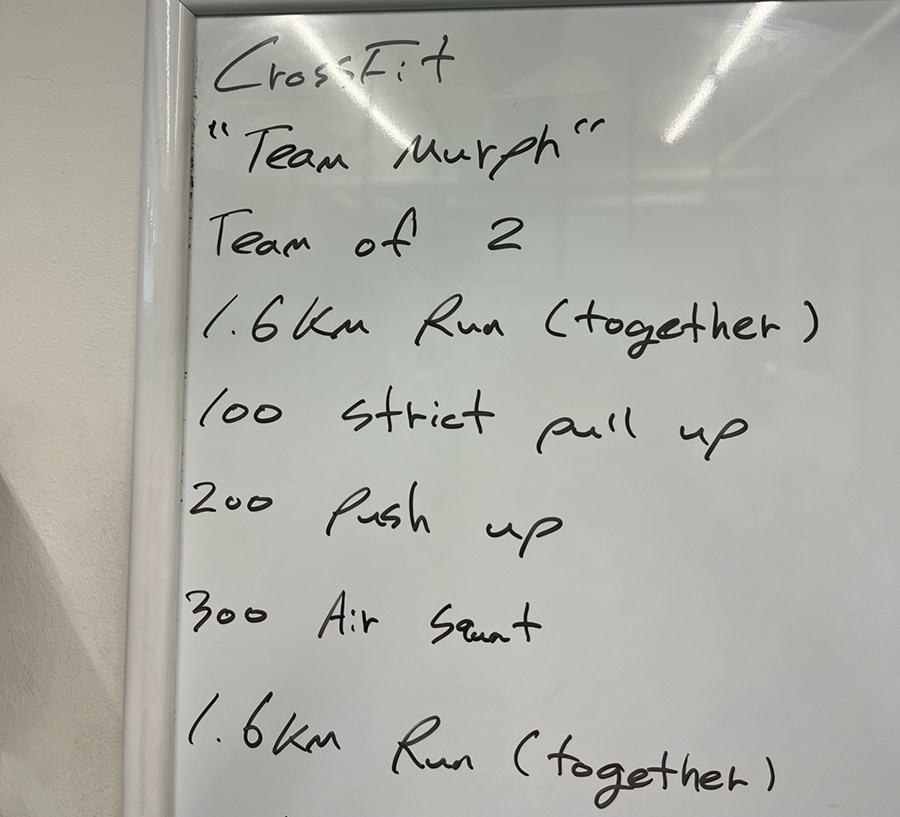 CrossFit
"Team Murph"
Team of 2
1.6km Run (together)
100 strict pull up
200 Push up
300 Air Squat
1.6km Run (together)